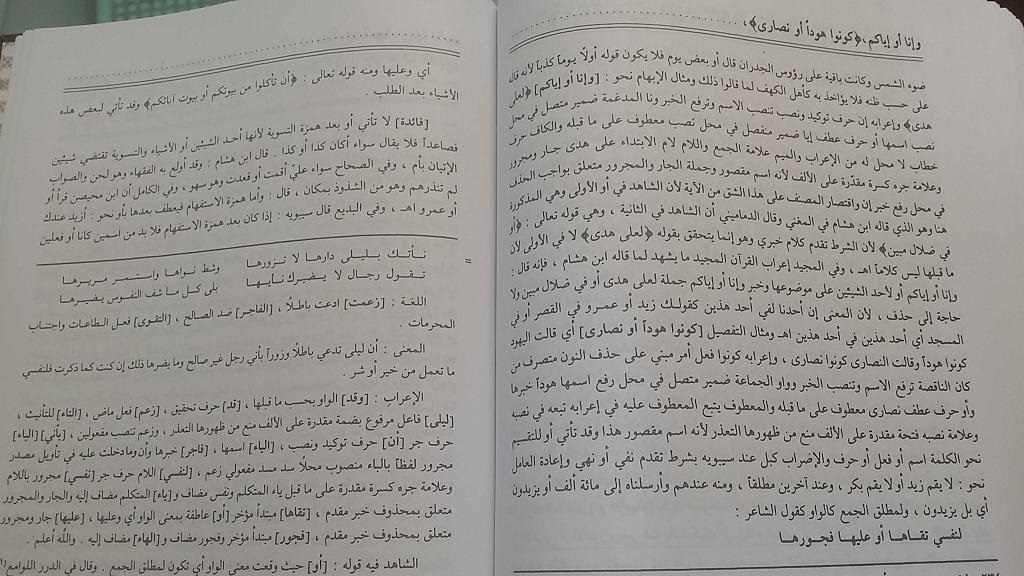 وإنا أو إياكم، ﴿كونوا هوداً أو نصارى﴾،
ضوء الشمس وكانت باقية على رؤوس الجدران قال أو بعض يوم فلا يكون قوله أولاً يوماً كذباً لأنه قاله
على حسب ظنه فلا يؤاخذ به كأهل الكهف لما قالوا ذلك ومثال الإبهام نحو : [وإنا أو إياكم] ﴿لعلى
هدى﴾ وإعرابه إن حرف توكيد ونصب تنصب الاسم وترفع الخبر ونا المدغمة ضمير متصل في محل
نصب اسمها أو حرف عطف إيا ضمير منفصل في محل نصب معطوف على ما قبله والكاف حرف
خطاب لا محل له من الإعراب والميم علامة الجمع واللام لام الابتداء على هدى جار ومجرور
وعلامة جره كسرة مقدّرة على الألف لأنه اسم مقصور وجملة الجار والمجرور متعلق بواجب الحذف
في محل رفع خبر إن واقتصار المصنف على هذا الشق من الآية لأن الشاهد في أو الأولى وهي المذكورة
هنا وهو الذي قاله ابن هشام في المغني وقال الدماميني أن الشاهد في الثانية ، وهي قوله تعالى : ﴿أو
في ضلال مبين﴾ لأن الشرط تقدم كلام خبري وهو إنما يتحقق بقوله ﴿لعلى هدى﴾ لا في الأولى لأن
ما قبلها ليس كلاماً اهـ ، وفي المجيد إعراب القرآن المجيد ما يشهد لما قاله ابن هشام ، فإنه قال :
وإنا أو إياكم أو لأحد الشيئين على موضوعها وخبر وإنا أو إياكم جملة لعلى هدى أو في ضلال مبين ولا
حاجة إلى حذف ، لأن المعنى إن أحدنا لفي أحد هذين كقولك زيد أو عمرو في القصر أو في
المسجد أي أحد هذين في أحد هذين اهـ ومثال التفصيل [كونوا هوداً أو نصارى] أي قالت اليهود
كونوا هوداً وقالت النصارى كونوا نصارى ، وإعرابه كونوا فعل أمر مبني على حذف النون متصرف من
كان الناقصة ترفع الاسم وتنصب الخبر وواو الجماعة ضمير متصل في محل رفع اسمها هوداً خبرها
وأو حرف عطف نصارى معطوف على ما قبله والمعطوف يتبع المعطوف عليه في إعرابه تبعه في نصبه
وعلامة نصبه فتحة مقدرة على الألف منع من ظهورها التعذر لأنه اسم مقصور هذا وقد تأتي أو للتقسيم
نحو الكلمة اسم أو فعل أو حرف والإضراب كبل عند سيبويه بشرط تقدم نفي أو نهي وإعادة العامل
نحو : لا يقم زيد أو لا يقم بكر ، وعند آخرين مطلقاً ، ومنه عندهم وأرسلناه إلى مائة ألف أو يزيدون
أي بل يزيدون ، ولمطلق الجمع كالواو كقول الشاعر :
لنفسي تقاها أو عليها فجورها
أي وعليها ومنه قوله تعالى : ﴿أن تأكلوا من بيوتكم أو بيوت آبائكم﴾ وقد تأتي لبعض هذه
الأشياء بعد الطلب .
[فائدة] لا تأتي أو بعد همزة التسوية لأنها أحد الشيئين أو الأشياء والتسوية تقتضي شيئين
فصاعداً فلا يقال سواء أكان كذا أو كذا . قال ابن هشام : وقد أولع به الفقهاء وهو لحن والصواب
الإتيان بأم ، وفي الصحاح سواء عليّ أقمت أو قعدت وهو سهو ، وفي الكامل أن ابن محيصن قرأ أو
لم تنذرهم وهو من الشذوذ بمكان ، قال : وأما همزة الاستفهام فيعطف بعدها بأو نحو : أزيد عندك
أو عمرو اهـ ، وفي البديع قال سيبويه : إذا كان بعد همزة الاستفهام فلا بد من اسمين كانا أو فعلين
=
نـأتـك بـليـلى دارهـا لا تـزورهـا وشط نـواها واستـمـر مـريـرها
تـقـول رجال لا يـضيـرك نـأيـهـا بلى كل ما شف النفوس يضيـرها
اللغة : [زعمت] ادعت باطلاً ، [الفاجر] ضد الصالح ، [التقوى] فعل الطاعات واجتناب
المحرمات .
المعنى : أن ليلى تدعي باطلاً وزوراً بأني رجل غير صالح وما يضرها ذلك إن كنت كما ذكرت فلنفسي
ما تعمل من خير أو شر .
الإعراب : [وقد] الواو بحسب ما قبلها ، [قد] حرف تحقيق ، [زعم] فعل ماض ، [التاء] للتأنيث ،
[ليلى] فاعل مرفوع بضمة مقدرة على الألف منع من ظهورها التعذر ، وزعم تنصب مفعولين ، [بأني] [الباء]
حرف جر [أن] حرف توكيد ونصب ، [الياء] اسمها ، [فاجر] خبرها وأن ومادخلت عليه في تأويل مصدر
مجرور لفظاً بالباء منصوب محلاً سد مسد مفعولي زعم ، [لنفسي] اللام حرف جر [نفسي] مجرور باللام
وعلامة جره كسرة مقدرة على ما قبل ياء المتكلم ونفس مضاف و[ياء] المتكلم مضاف إليه والجار والمجرور
متعلق بمحذوف خبر مقدم ، [تقاها] مبتدأ مؤخر [أو] عاطفة بمعنى الواو أي وعليها ، [عليها] جار ومجرور
متعلق بمحذوف خبر مقدم ، [فجور] مبتدأ مؤخر وفجور مضاف و[الهاء] مضاف إليه . والله أعلم .
الشاهد فيه قوله : [أو] حيث وقعت معنى الواو أي تكون لمطلق الجمع . وقال في الدرر اللوامع